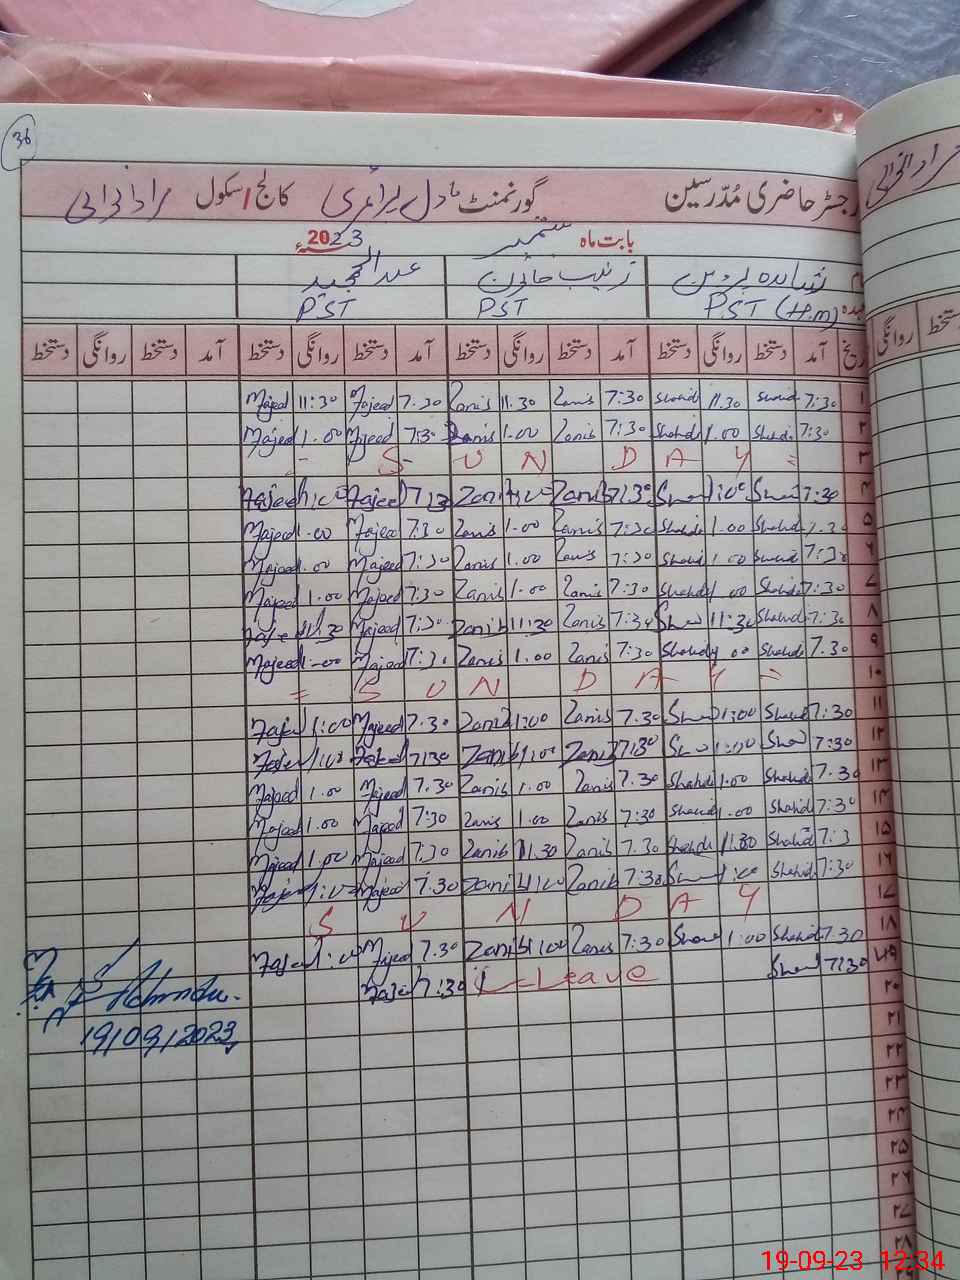 36
رجسٹر حاضری مُدّرسین گورنمنٹ ماڈل پرائمری کالج/سکول
بابت ماہ ستمبر 2023
شاہدہ پروین زینب خاتون عبدالمجید
PST (H.m) PST PST
تاریخ آمد دستخط روانگی دستخط آمد دستخط روانگی دستخط آمد دستخط روانگی دستخط آمد دستخط روانگی دستخط
روانگی دستخط
۱ 7:30 Shahid 11.30 Shahid 7:30 Zanib 11.30 Zanib 7.30 Majeed 11:30 Majeed
۲ 7:30 Shahid 1.00 Shahid 7:30 Zanib 1.00 Zanib 7:30 Majeed 1.00 Majeed
۳ S U N D A Y
۴ 7:30 1:00 7:30 Zanib 1:00 Zanib 7:30 Majeed 1:00 Majeed
۵ 7.30 Shahid 1.00 Shahid 7:30 Zanib 1.00 Zanib 7:30 Majeed 1.00 Majeed
۶ 7:30 Shahid 1.00 Shahid 7:30 Zanib 1.00 Zanib 7:30 Majeed 1.00 Majeed
۷ 7:30 Shahid 1.00 Shahid 7:30 Zanib 1.00 Zanib 7:30 Majeed 1.00 Majeed
۸ 7:30 Shahid 11:30 7:30 Zanib 11:30 Zanib 7:30 Majeed 11:30 Majeed
۹ 7.30 Shahid 1.00 Shahid 7:30 Zanib 1.00 Zanib 7:30 Majeed 1.00 Majeed
۱۰ = S U N D A Y =
۱۱ 7:30 Shahid 1:00 7.30 Zanib 1:00 Zanib 7.30 Majeed 1:00 Majeed
۱۲ 7:30 1:00 7:30 Zanib 1:00 Zanib 7:30 Majeed 1:00 Majeed
۱۳ 7.30 Shahid 1.00 Shahid 7.30 Zanib 1.00 Zanib 7.30 Majeed 1.00 Majeed
۱۴ 7:30 Shahid 1.00 Shahid 7:30 Zanib 1.00 Zanib 7:30 Majeed 1.00 Majeed
۱۵ 7:3 Shahid 11.30 Shahid 7.30 Zanib 11.30 Zanib 7:30 Majeed 1.00 Majeed
۱۶ 7:30 Shahid 1:00 7:30 Zanib 1:00 Zanib 7.30 Majeed 1:00 Majeed
۱۷ S U N D A Y
۱۸ 7.30 Shahid 1:00 7:30 Zanib 1:00 Zanib 7.30 Majeed 1:00 Majeed
۱۹ 7:30 Leave 7:30 Majeed
۲۰
۲۱
۲۲
۲۳
۲۴
۲۵
۲۶
۲۷
۲۸
19/09/2023
19-09-23 12:34